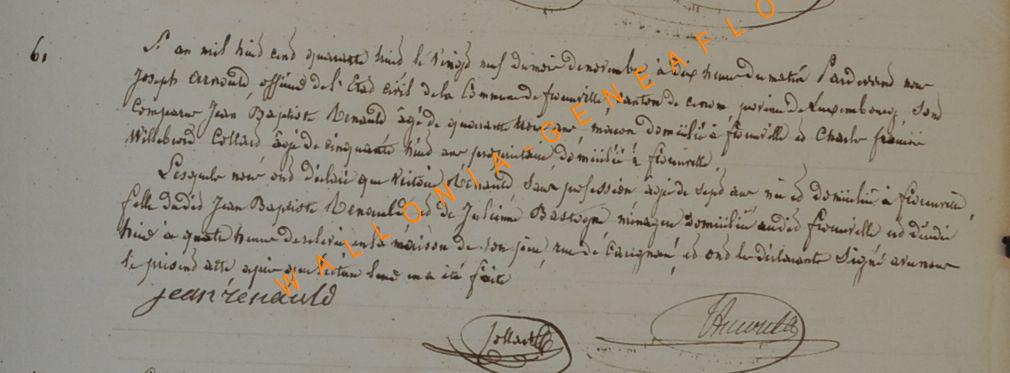 61
L'an mil huit cent quarante huit le Vingt neuf du mois de novembre à dix heures du matin Pardevant nous
Joseph Arnould officier de l'Etat civil de la Commune de florenville Canton de ce nom province de Luxembourg, Sont
Comparus Jean Baptiste Renauld âgé de quarante ans maçon domicilié à florenville et Charles françois
Willebrord Collard âgé de cinquante huit ans propriétaire domicilié à florenville
Lesquels nous ont déclaré que Victoire Renauld Sans profession agée de sept ans née et domiciliée à florenville,
fille dudit Jean Baptiste Renauld et de Julienne Bastogne ménagère domiciliée audit florenville est décédée
hier à quatre heures de relevée en la maison de son père, rue de Carignan, et ont les déclarants Signé avec nous
le présent acte après que lecture leur en a été faite
jean renauld
Collard
JArnould
WALLONIA-GENEAFLO